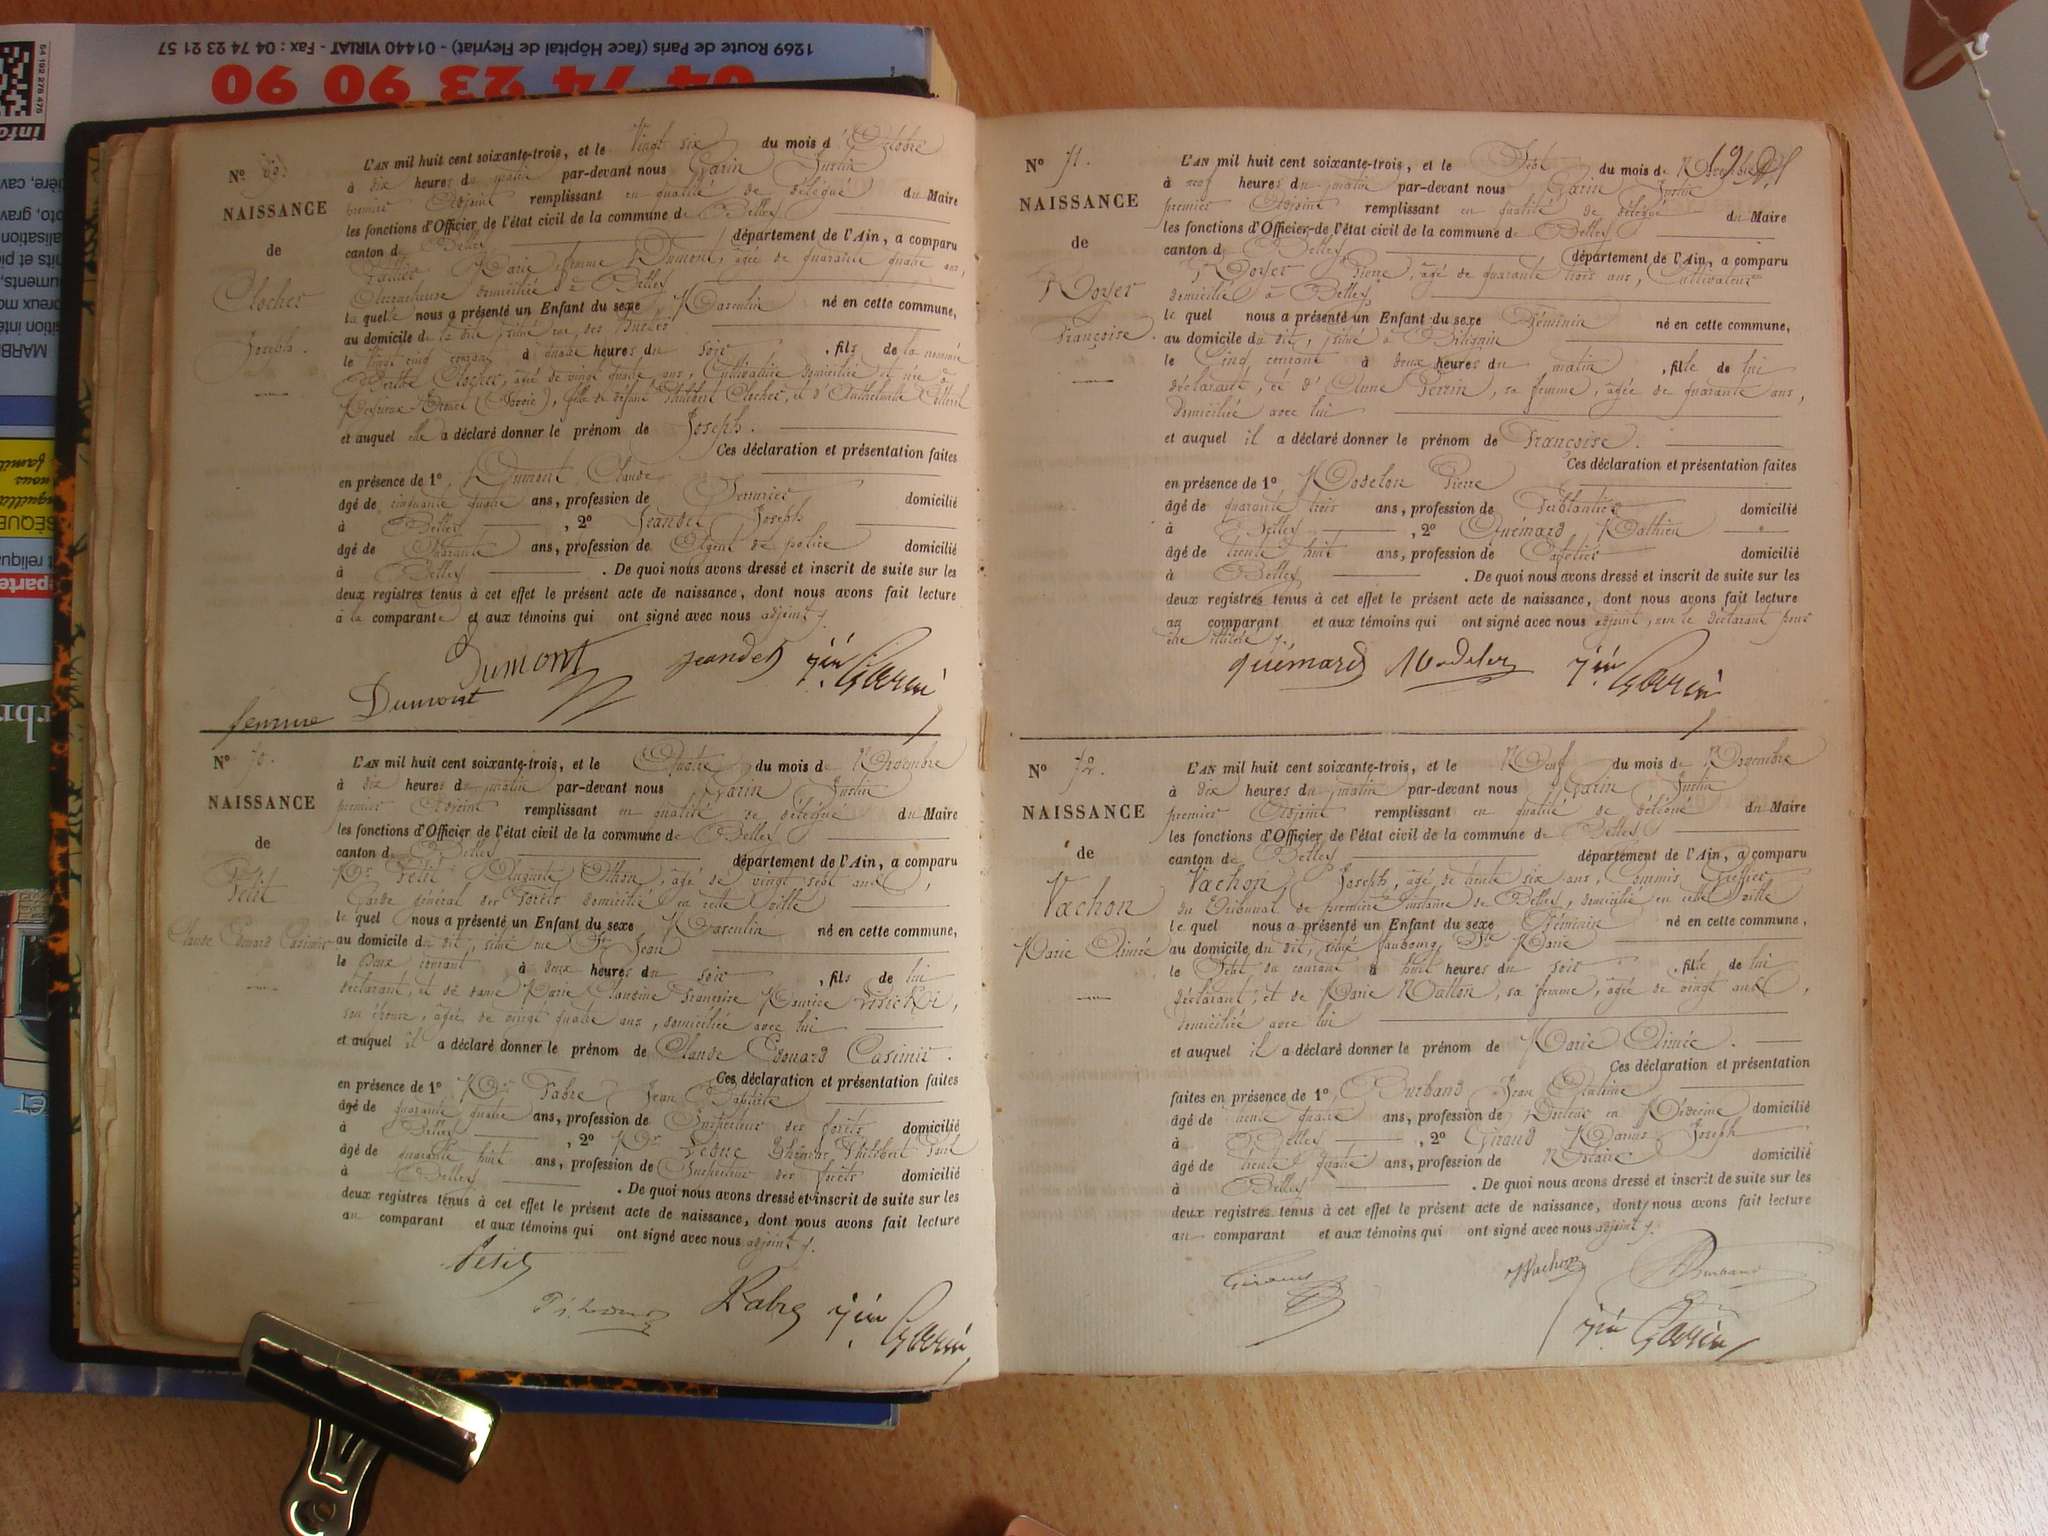 1269 Route de Paris (face Hôpital de Fleyriat) - 01440 VIRIAT - Fax : 04 74 23 21 57
04 74 23 90 90
64 192 278 475
N° 69.
NAISSANCE
de
Clocher
Joseph.
L'AN mil huit cent soixante-trois, et le Vingt six du mois d'Octobre
à dix heures du matin par-devant nous Garin Justin
premier Adjoint remplissant en qualité de délégué du Maire
les fonctions d'Officier de l'état civil de la commune de Belley
canton de Belley département de l'Ain, a comparu
Marie, femme Dumont, âgée de quarante quatre ans,
Accoucheuse domiciliée à Belley
laquelle nous a présenté un Enfant du sexe Masculin né en cette commune,
au domicile de la dite, situé rue des
le Vingt cinq courant à quatre heures du soir, fils de la nommée
Berthe Clocher, âgée de vingt quatre ans, Cultivatrice domiciliée et née à
(Savoie), fille de défunt Philibert Clocher, et d'Anthelmette
et auquel elle a déclaré donner le prénom de Joseph.
Ces déclaration et présentation faites
en présence de 1° Dumont Claude
âgé de cinquante quatre ans, profession de domicilié
à Belley, 2° Jeandet Joseph
âgé de Quarante ans, profession de Agent de police domicilié
à Belley. De quoi nous avons dressé et inscrit de suite sur les
deux registres tenus à cet effet le présent acte de naissance, dont nous avons fait lecture
à la comparante et aux témoins qui ont signé avec nous adjoint
Dumont Jeandet Jin Garin
femme Dumont
N° 70.
NAISSANCE
de
Petit
Claude Edouard Casimir
L'AN mil huit cent soixante-trois, et le Quatre du mois de Novembre
à dix heures du matin par-devant nous Garin Justin
premier Adjoint remplissant en qualité de délégué du Maire
les fonctions d'Officier de l'état civil de la commune de Belley
canton de Belley département de l'Ain, a comparu
Mr Petit Auguste Othon, âgé de vingt sept ans,
Garde général des Forêts domicilié en cette ville
lequel nous a présenté un Enfant du sexe Masculin né en cette commune,
au domicile du dit, situé rue St Jean
le Deux courant à deux heures du soir, fils de lui
déclarant, et de dame Marie Claudine Françoise Maurice
son épouse, âgée de vingt quatre ans, domiciliée avec lui
et auquel il a déclaré donner le prénom de Claude Edouard Casimir.
Ces déclaration et présentation faites
en présence de 1° Mr Fabre Jean Baptiste
âgé de quarante quatre ans, profession de Inspecteur des forêts domicilié
à Belley, 2° Mr Thomas Philibert Paul
âgé de quarante huit ans, profession de Inspecteur des forêts domicilié
à Belley. De quoi nous avons dressé et inscrit de suite sur les
deux registres tenus à cet effet le présent acte de naissance, dont nous avons fait lecture
au comparant et aux témoins qui ont signé avec nous adjoint
Petit
Fabre Jin Garin
N° 71.
NAISSANCE
de
Royer
Françoise.
L'AN mil huit cent soixante-trois, et le Sept du mois de Novembre
à neuf heures du matin par-devant nous Garin Justin
premier Adjoint remplissant en qualité de délégué du Maire
les fonctions d'Officier de l'état civil de la commune de Belley
canton de Belley département de l'Ain, a comparu
Royer Pierre, âgé de quarante trois ans, Cultivateur
domicilié à Belley
lequel nous a présenté un Enfant du sexe Féminin né en cette commune,
au domicile du dit, situé à Billignin
le Cinq courant à deux heures du matin, fille de lui
déclarant, et d'Anne Perrin, sa femme, âgée de quarante ans,
domiciliée avec lui
et auquel il a déclaré donner le prénom de Françoise.
Ces déclaration et présentation faites
en présence de 1° Modelon Pierre
âgé de quarante trois ans, profession de Ferblantier domicilié
à Belley, 2° Quémard Mathieu
âgé de trente huit ans, profession de Cafetier domicilié
à Belley. De quoi nous avons dressé et inscrit de suite sur les
deux registres tenus à cet effet le présent acte de naissance, dont nous avons fait lecture
au comparant et aux témoins qui ont signé avec nous adjoint, non le déclarant pour
être illitéré
quémard Modelon Jin Garin
N° 72.
NAISSANCE
de
Vachon
Marie Aimée
L'AN mil huit cent soixante-trois, et le Neuf du mois de Novembre
à dix heures du matin par-devant nous Garin Justin
premier Adjoint remplissant en qualité de délégué du Maire
les fonctions d'Officier de l'état civil de la commune de Belley
canton de Belley département de l'Ain, a comparu
Vachon Joseph, âgé de trente six ans, Commis Greffier
du Tribunal de première Instance de Belley, domicilié en cette ville
lequel nous a présenté un Enfant du sexe Féminin né en cette commune,
au domicile du dit, situé faubourg Ste Marie
le Sept du courant à huit heures du soir, fille de lui
déclarant, et de Marie Mallon, sa femme, âgée de vingt ans,
domiciliée avec lui
et auquel il a déclaré donner le prénom de Marie Aimée.
Ces déclaration et présentation
faites en présence de 1° Burband Jean
âgé de trente quatre ans, profession de Docteur en Médecine domicilié
à Belley, 2° Giraud Marius Joseph
âgé de trente quatre ans, profession de Notaire domicilié
à Belley. De quoi nous avons dressé et inscrit de suite sur les
deux registres tenus à cet effet le présent acte de naissance, dont nous avons fait lecture
au comparant et aux témoins qui ont signé avec nous adjoint
Giraud Vachon Burband
Jin Garin